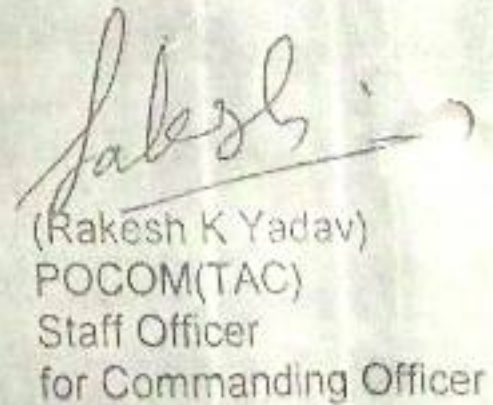 (Rakesh K Yadav)
POCOM(TAC)
Staff Officer
for Commanding Officer